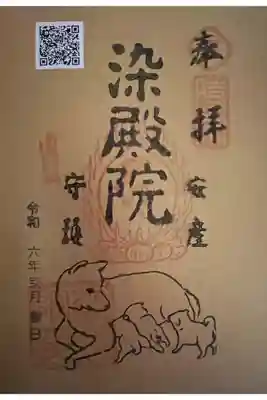 奉拝
染殿院
安産
守護
令和 六年三月 日